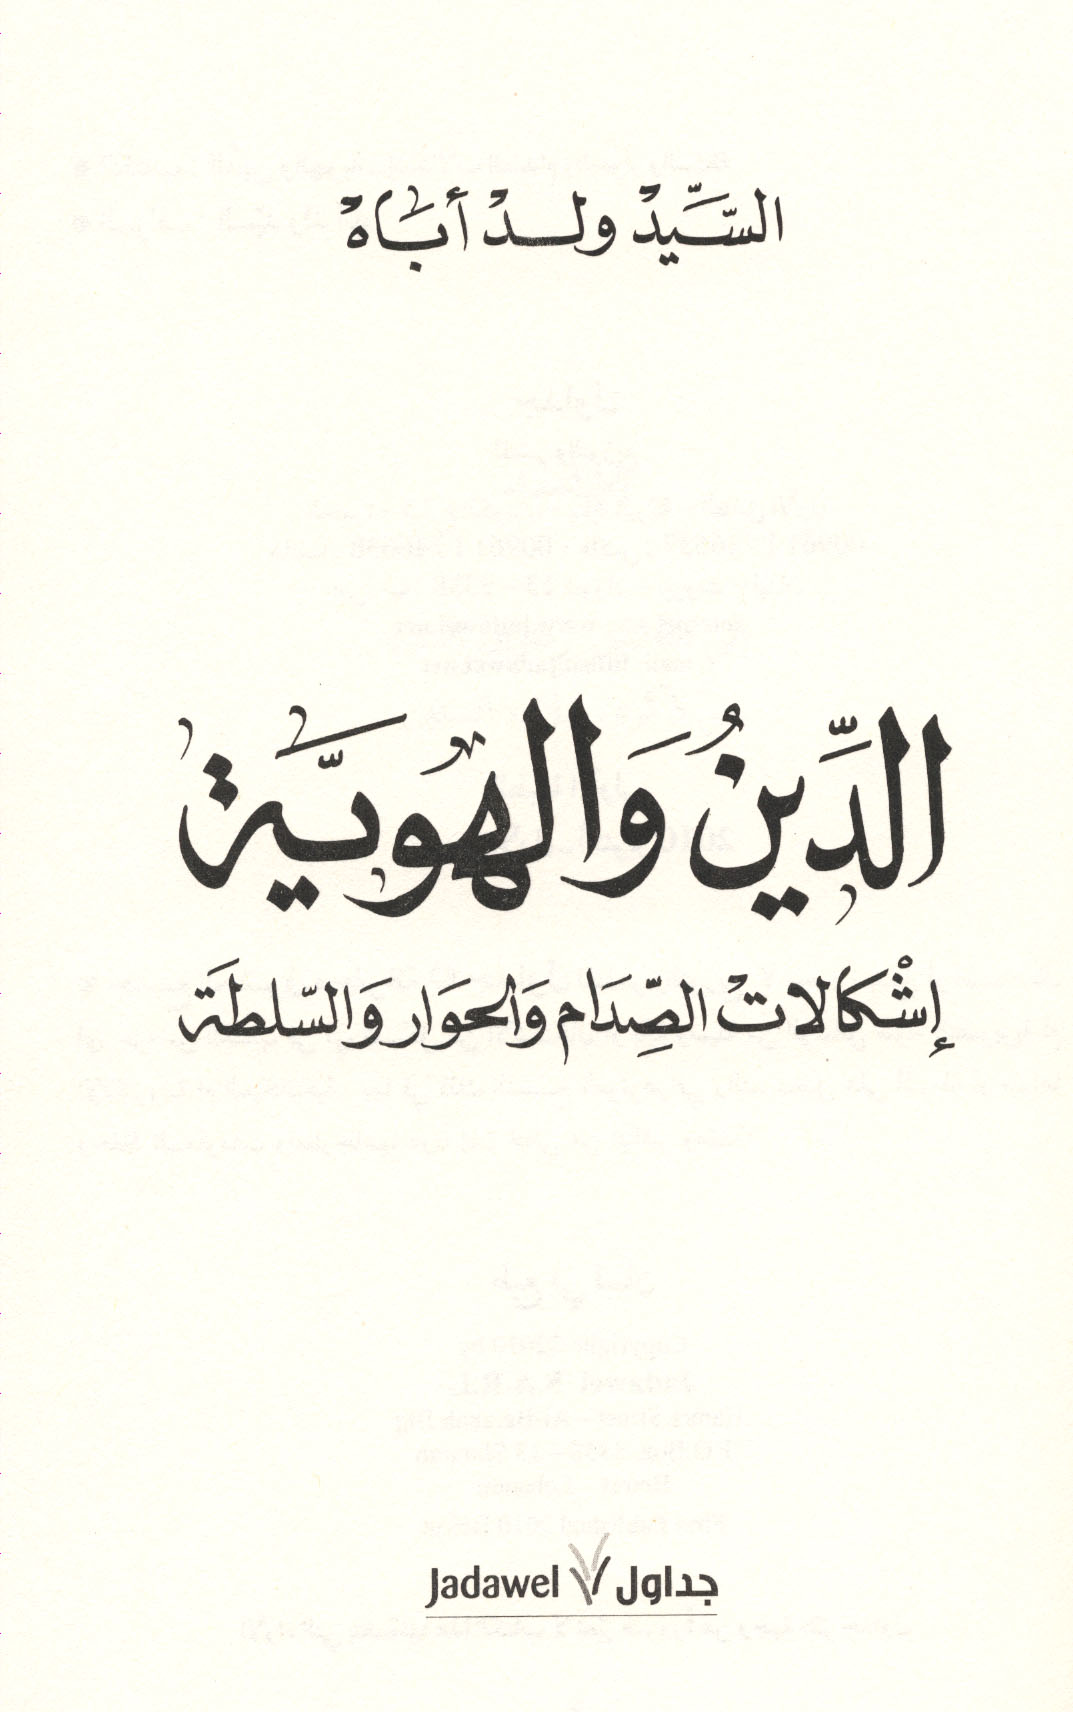 السَّيِّدْ ولـدْ أبَاهْ
الدِّينُ وَالهُويَّة
إشْكَالاتْ الصِّدَام وَالحوَار وَالسّلطَة
Jadawel جداول